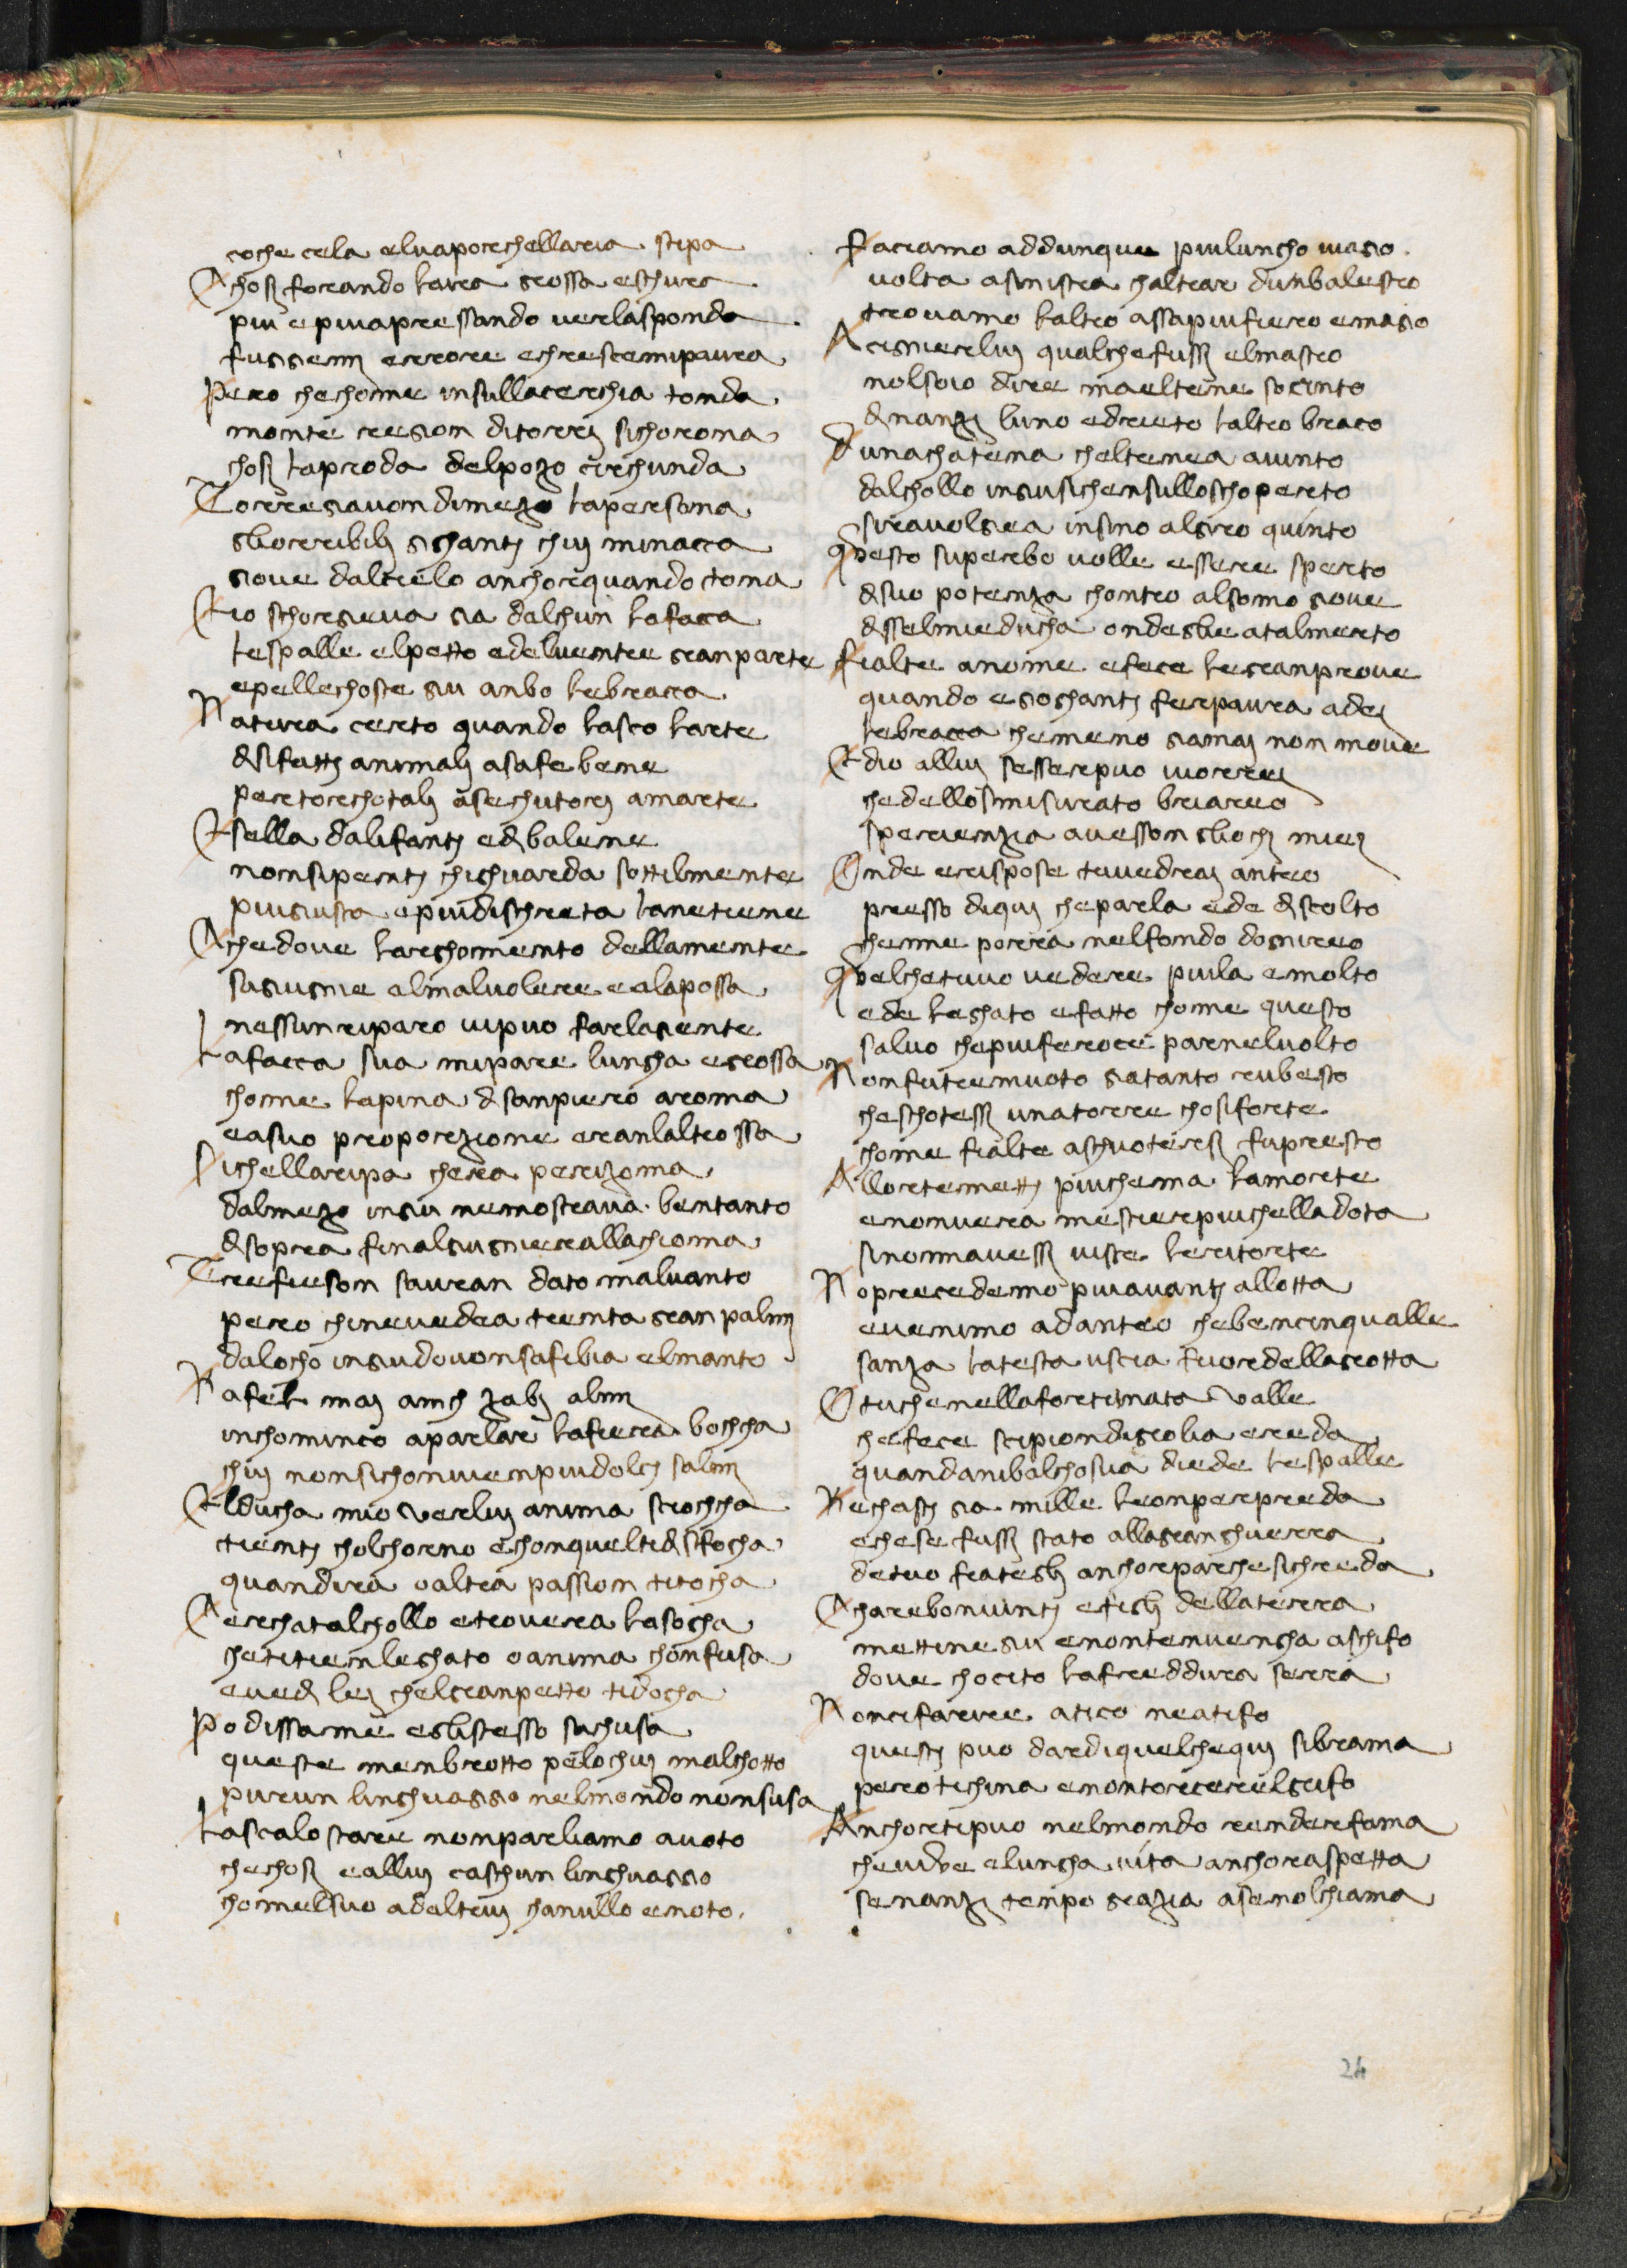 cio che cela eluaporechellaria stipa
Chosi forando laura grossa eschura
piu e piuapressando uerlasponda
fuggemi errore echrescemipaura
Pero chechome insullacerchia tonda
monte reggion ditorri sichorona
chosi laproda delpozo circhunda
Torregiauon dimezo lapersona
gliorribili gighanti chui minacca
gioue dalcielo anchorquando tona
Et io schorgieua gia dalchun lafacca
lespalle elpetto edeluentre granparte
epellechoste giu anbo lebracca
Natura certo quando lascio larte
disifatti animali asafe bene
pertorechotali asechutori amarte
Esella dalifanti edibalene
nonsipenti chighuarda sottilmente
piugiusta epiudischreta lanetiene
Chedoue larghomento dellamente
sagiugnie almaluolere ealapossa
nessunriparo uipuo farlagiente
Lafacca sua mipare lungha egrossa
chome lapina disanpiero aroma
easuo proporzione eranlaltrossa
Sichellaripa chera perizoma
dalmezo ingiu nemostraua bentanto
disopra finalgiugniereallachioma
Trefrieson sauean dato maluanto
pero chineuedea trenta granpalmi
dalocho ingiudouonsafibia elmanto
Rafel mai amech zabi almi
inchomincio aparlar lafiera bochcha
chui nonsichonuienpiudolci salmi
Elducha mio verlui anima sciochcha
tienti cholchorno echonqueltidisfocha
quandira oaltra passion titocha
Cerchatalchollo etrouerai lasogha
chetitienleghato oanima chonfusa
euedi lei chelgranpetto tidogha
Po dissame eglistesso sachusa
queste menbrotto pelochui malchotto
pureun linghuaggio nelmondo nonsusa
Lascalostare nonparliamo auoto
chechosi eallui caschun linghuaggio
chomelsuo adaltrui chanullo enoto
Facciamo addunque piulungho uiaggio
volta asinistra chaltrar dunbalestro
trouamo laltro assapiufiero emagio
Acigniere lui qualchefussi elmastro
nolsoio dire maeltene socinto
dinanzi luno edrieto laltro bracco
Dunachatena cheltenea auinto
dalchollo ingiusichensulloschoperto
siraouolgea insino algiro quinto
Questo superbo uolle essere sperto
disuo potenza chontro alsomo gioue
disselmieducha ondeglie atalmerto
Fialte anome efece legranproue
quando egighanti ferpaura adei
lebracca chemeno giamai non moue
Et dio allui sessere puo uorrei
chedellosmisurato briareo
sperienzia auesson gliochi miei
Onde erispose tuuedrai anteo
presso diqui cheparla ede disciolto
chenne porra nelfondo dognireo
Quelchetuuo uedere piula emolto
ede leghato efatto chome questo
saluo chepiuferoce parneluolto
Nonfutremuoto giatanto rubesto
cheschotessi unatorre chosiforte
chome fialte aschuotersi fupresto
Allortemetti piuchemai lamorte
enonuera mestierepiuchelladotta
sinonnauessi uiste leritorte
Noprecedemo piuauanti allotta
euenimo adanteo chebencinqualle
sanza latesta uscia fuordellagrotta
O tuchenellafortunata valle
chefece scipiondigrolia ereda
quandanibalchosua diede lespalle
Rechasti gia mille leonperpreda
echese fussi stato allagranghuerra
detuo frategli anchorparchesichreda
Charebonuinti efigli dellaterra
mettine giu enontenuengha aschifo
doue chocito lafreddura serra
Noncifareire atico neatifo
questi puo dardiquelchequi sibrama
perotichina enontorcereelgrifo
Anchortipuo nelmondo renderfama
cheuiue elungha uita anchoraspetta
senanzi tenpo grazia asenolchiama
24